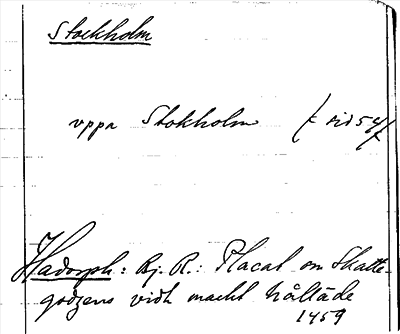 Stockholm
vppa Stokholm
Hadorph: Bj. R.: Placat om Skatte-
godzens vidh macht håltade
1459